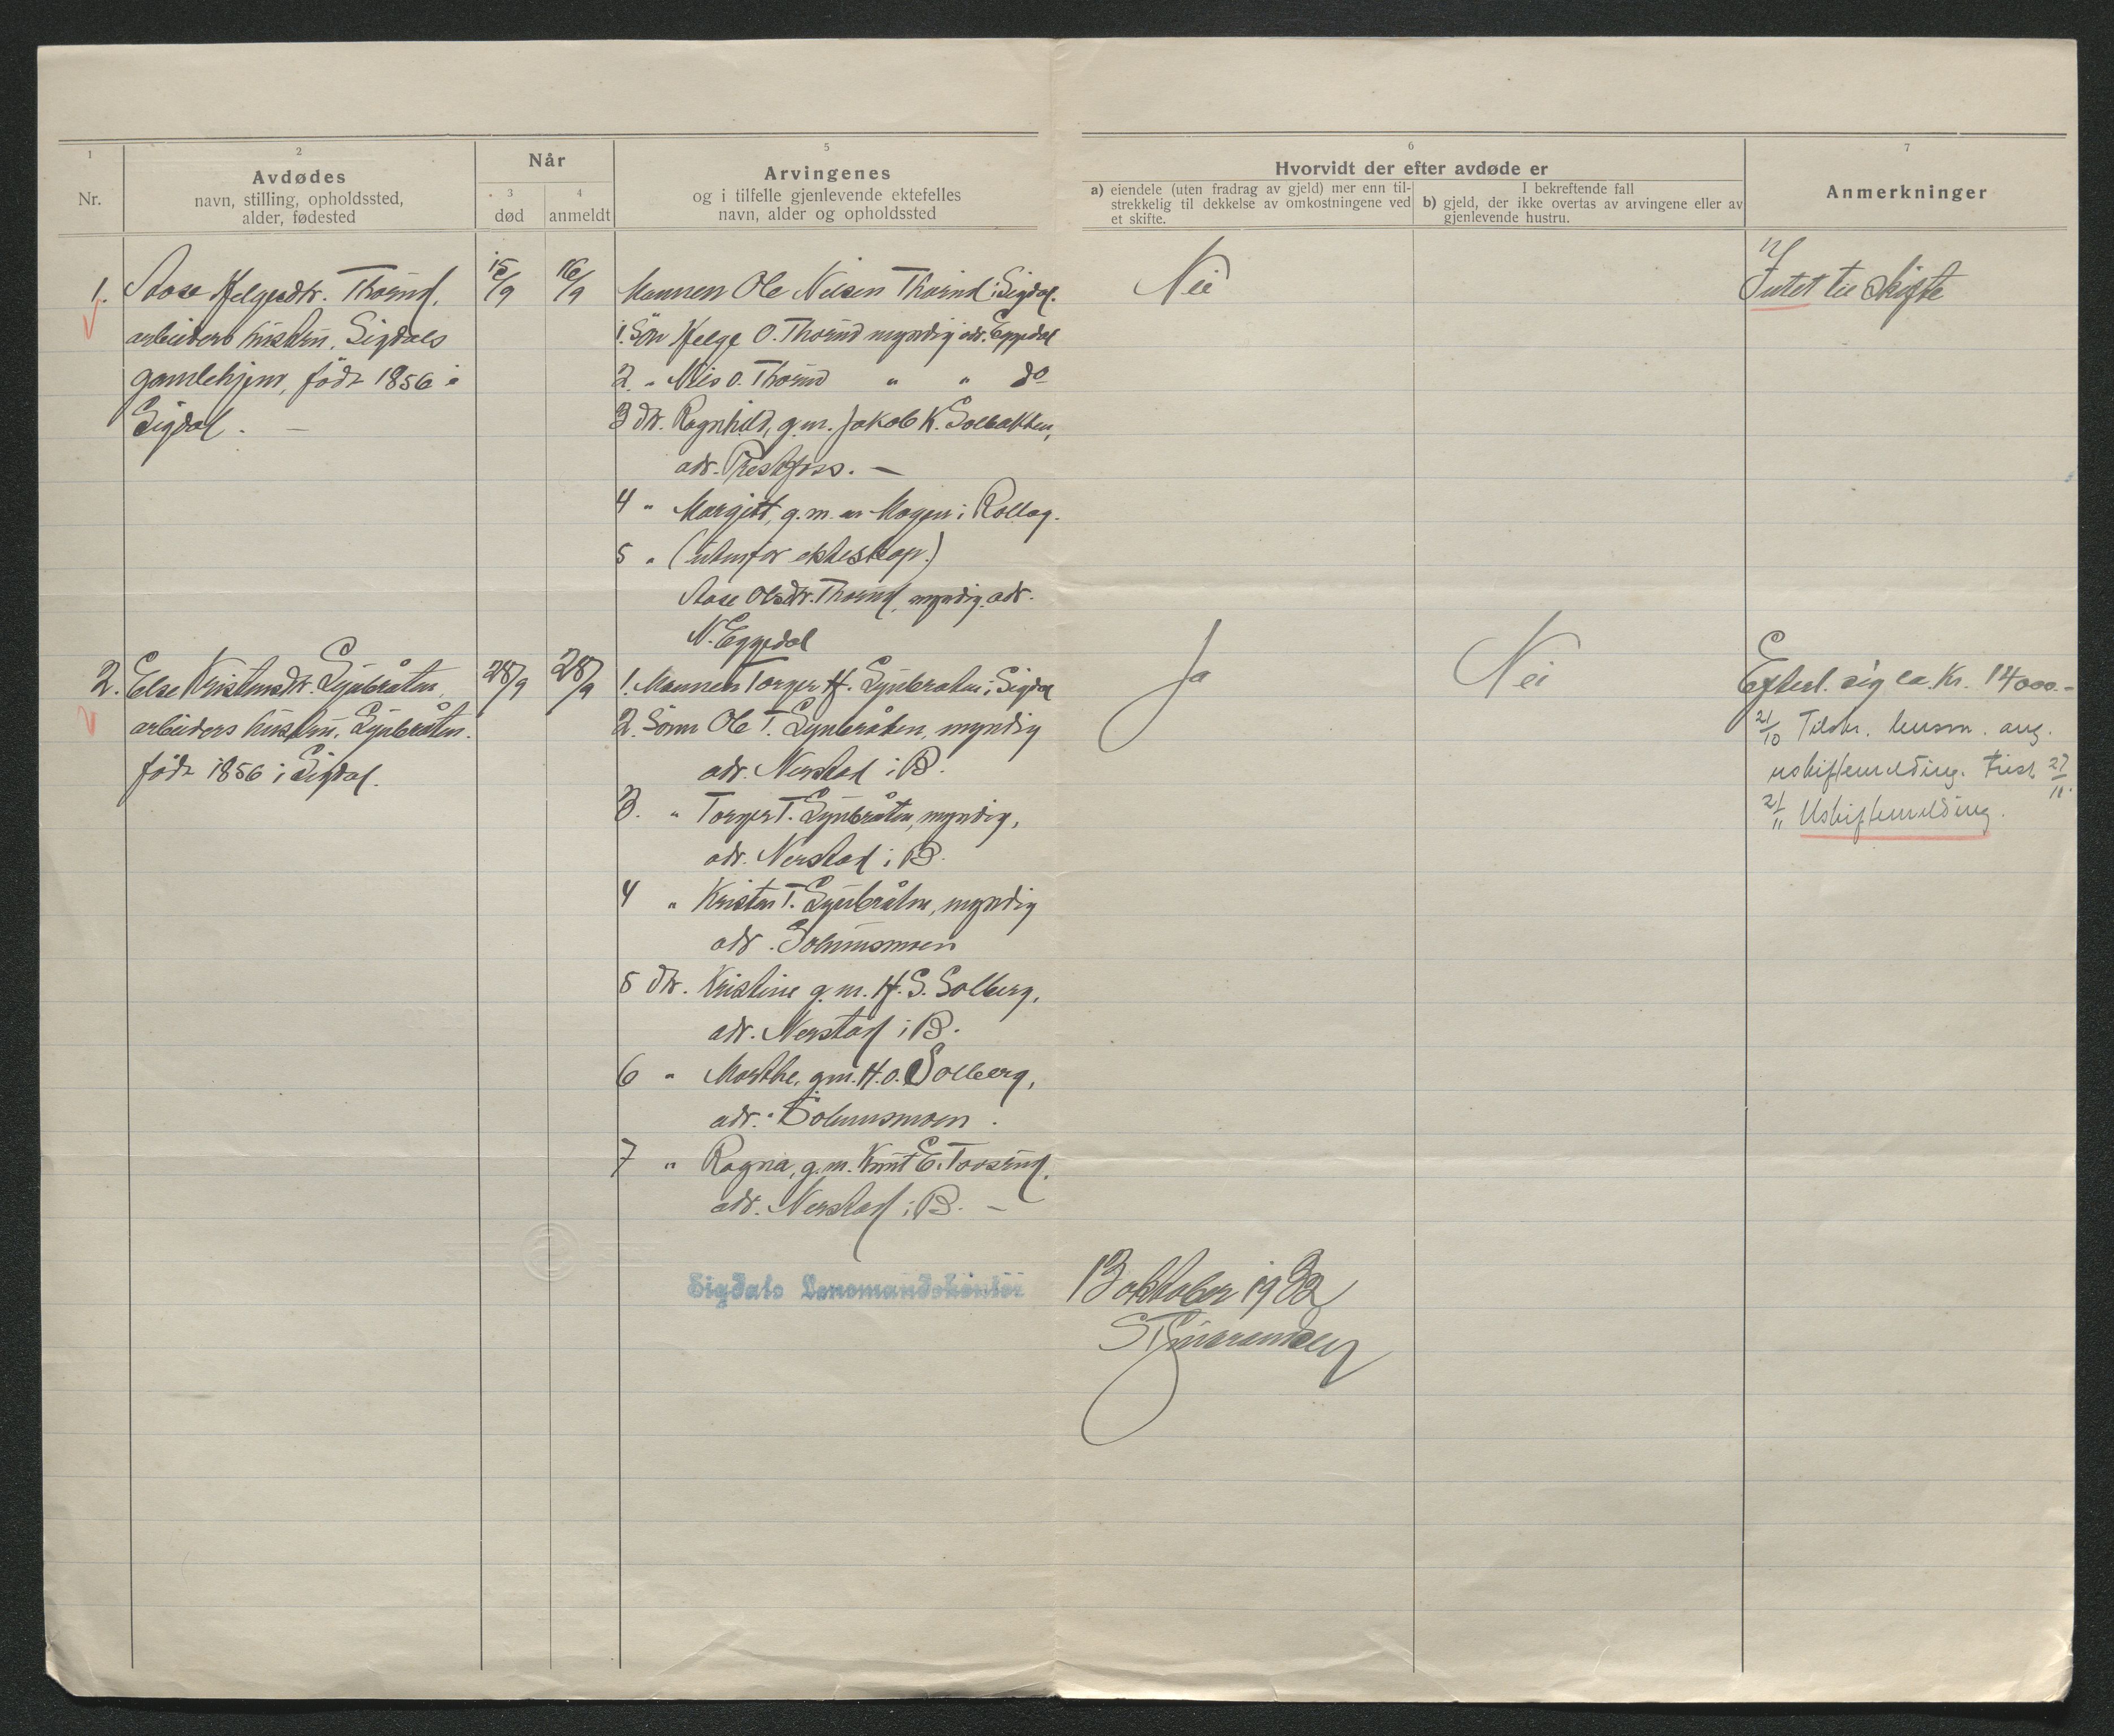 1
2
Når
5
6
7
Nr.
Avdødes
navn, stilling, opholdssted,
alder, fødested
3
død
4
anmeldt
Arvingenes
og i tilfelle gjenlevende ektefelles
navn, alder og opholdssted
Hvorvidt der efter avdøde er
a) eiendele (uten fradrag av gjeld) mer enn til-
strekkelig til dekkelse av omkostningene ved
et skifte.
I bekreftende fall
b) gjeld, der ikke overtas av arvingene eller av
gjenlevende hustru.
Anmerkninger
1. Aase Helgesdtr. Thorud,
arbeiders hustru, Sigdals
gamlehjem, født 1856 i
Sigdal. –
15/9
16/9
Mannen Ole Nilsen Thorud i Sigdal.
1. Søn Helge O. Thorud myndig adr. Eggedal
2. " Nils O. Thorud " " do
3 dtr. Ragnhild, g.m. Jakob K. Solbakken,
adr. Prestfoss. –
4 " Margit, g.m. en Mogen i Rollag.
5 " (utenfor ekteskap.)
Aase Olsdtr. Thorud, myndig, adr.
N. Eggedal
Nei
Intet til skifte
2. Else Kristensdtr. Lynbråten,
arbeiders hustru, Lynbråten.
født 1856 i Sigdal.
28/9
28/9
1. Mannen Torger H. Lynbråten i Sigdal
2. Sønn Ole T. Lynbråten, myndig
adr. Nerstad i B.
3. " Torger T. Lynbråten, myndig,
adr. Nerstad i B.
4 " Kristen T. Lynbråten, myndig
adr. Solumsmoen
5 dtr. Kristine g.m. H. S. Solberg,
adr. Nerstad i B.
6 " Marthe, gm. H. O. Solberg,
adr. Solumsmoen.
7 " Ragna, g.m. Knut E. Toverud,
adr. Nerstad i B. –
Ja
Nei
Efterl. sig ca. Kr. 14000.-
21/10 Tilskr. lensm. ang.
uskiftemelding. Frist 27/11.
21/11 Uskiftemelding.
Sigdals Lensmandskontor
13 oktober 1932